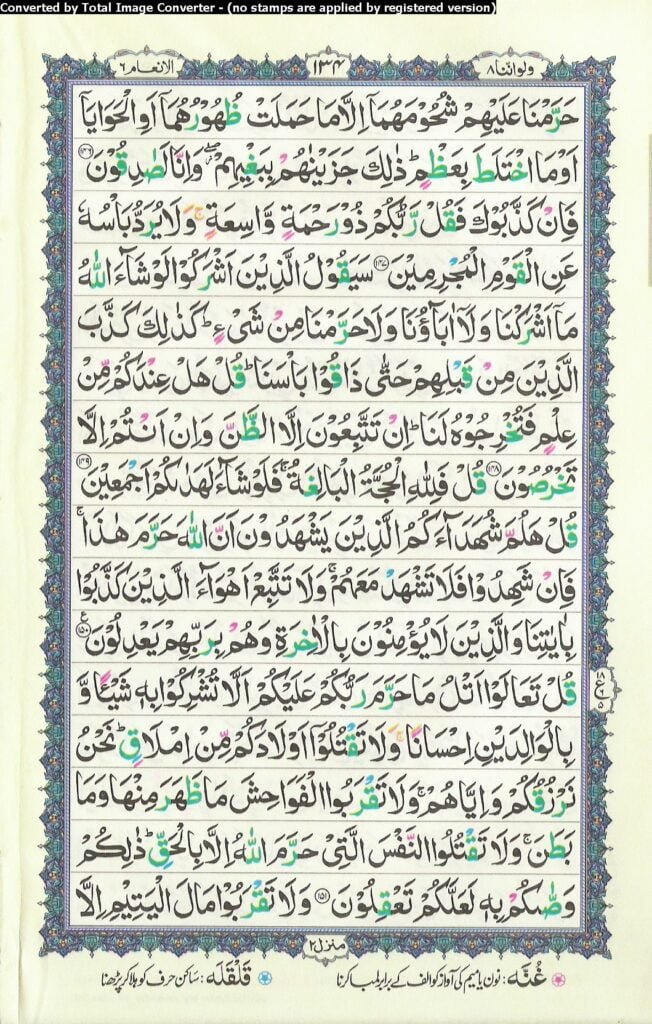 Converted by Total Image Converter - (no stamps are applied by registered version)
ولواننا ٨
١٣٤
الانعام ٦
حَرَّمْنَا عَلَيْهِمْ شُحُوْمَهُمَاۤ اِلَّا مَا حَمَلَتْ ظُهُوْرُهُمَاۤ اَوِ الْحَوَايَاۤ
اَوْ مَا اخْتَلَطَ بِعَظْمٍ ؕ ذٰلِكَ جَزَيْنٰهُمْ بِبَغْيِهِمْ ۖ وَ اِنَّا لَصٰدِقُوْنَ ﴿۱۴۶﴾
فَاِنْ كَذَّبُوْكَ فَقُلْ رَّبُّكُمْ ذُوْ رَحْمَةٍ وَّاسِعَةٍ ۚ وَلَا يُرَدُّ بَاْسُهٗ
عَنِ الْقَوْمِ الْمُجْرِمِيْنَ ﴿۱۴۷﴾ سَيَقُوْلُ الَّذِيْنَ اَشْرَكُوْا لَوْ شَآءَ اللّٰهُ
مَاۤ اَشْرَكْنَا وَلَاۤ اٰبَآؤُنَا وَلَا حَرَّمْنَا مِنْ شَىْءٍ ؕ كَذٰلِكَ كَذَّبَ
الَّذِيْنَ مِنْ قَبْلِهِمْ حَتّٰى ذَاقُوْا بَاْسَنَا ؕ قُلْ هَلْ عِنْدَكُمْ مِّنْ
عِلْمٍ فَتُخْرِجُوْهُ لَنَا ؕ اِنْ تَتَّبِعُوْنَ اِلَّا الظَّنَّ وَاِنْ اَنْتُمْ اِلَّا
تَخْرُصُوْنَ ﴿۱۴۸﴾ قُلْ فَلِلّٰهِ الْحُجَّةُ الْبَالِغَةُ ۚ فَلَوْ شَآءَ لَهَدٰىكُمْ اَجْمَعِيْنَ ﴿۱۴۹﴾
قُلْ هَلُمَّ شُهَدَآءَكُمُ الَّذِيْنَ يَشْهَدُوْنَ اَنَّ اللّٰهَ حَرَّمَ هٰذَا ۚ
فَاِنْ شَهِدُوْا فَلَا تَشْهَدْ مَعَهُمْ ۚ وَلَا تَتَّبِعْ اَهْوَآءَ الَّذِيْنَ كَذَّبُوْا
بِاٰيٰتِنَا وَالَّذِيْنَ لَا يُؤْمِنُوْنَ بِالْاٰخِرَةِ وَهُمْ بِرَبِّهِمْ يَعْدِلُوْنَ ﴿۱۵۰﴾ ع
قُلْ تَعَالَوْا اَتْلُ مَا حَرَّمَ رَبُّكُمْ عَلَيْكُمْ اَلَّا تُشْرِكُوْا بِهٖ شَيْـًٔا وَّ
بِالْوَالِدَيْنِ اِحْسَانًا ۚ وَلَا تَقْتُلُوْۤا اَوْلَادَكُمْ مِّنْ اِمْلَاقٍ ؕ نَحْنُ
نَرْزُقُكُمْ وَاِيَّاهُمْ ۚ وَلَا تَقْرَبُوا الْفَوَاحِشَ مَا ظَهَرَ مِنْهَا وَمَا
بَطَنَ ۚ وَلَا تَقْتُلُوا النَّفْسَ الَّتِىْ حَرَّمَ اللّٰهُ اِلَّا بِالْحَقِّ ؕ ذٰلِكُمْ
وَصّٰىكُمْ بِهٖ لَعَلَّكُمْ تَعْقِلُوْنَ ﴿۱۵۱﴾ وَلَا تَقْرَبُوْا مَالَ الْيَتِيْمِ اِلَّا
منزل ٢
غُنَّه: نون یا میم کی آواز کو الف کے برابر لمبا کرنا
قَلْقَلَه: ساکن حرف کو ہلا کر پڑھنا